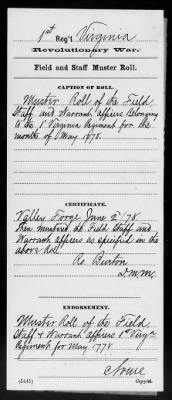 1st Reg't Virginia
Revolutionary War.
Field and Staff Muster Roll.
CAPTION OF ROLL.
Muster Roll of the Field
Staff and Warrant officers belonging
to the 1st Virginia Regiment for the
months of May 1778.
CERTIFICATE.
Valley Forge June 2d 78
Then mustered the Field Staff and
Warrant officers as specified in the
above Roll.
Ro. Burton
D.M.M.
ENDORSEMENT.
Muster Roll of the Field
Staff & Warrant officers 1st Virga
Regiment for May 1778
(545)
Copyist.